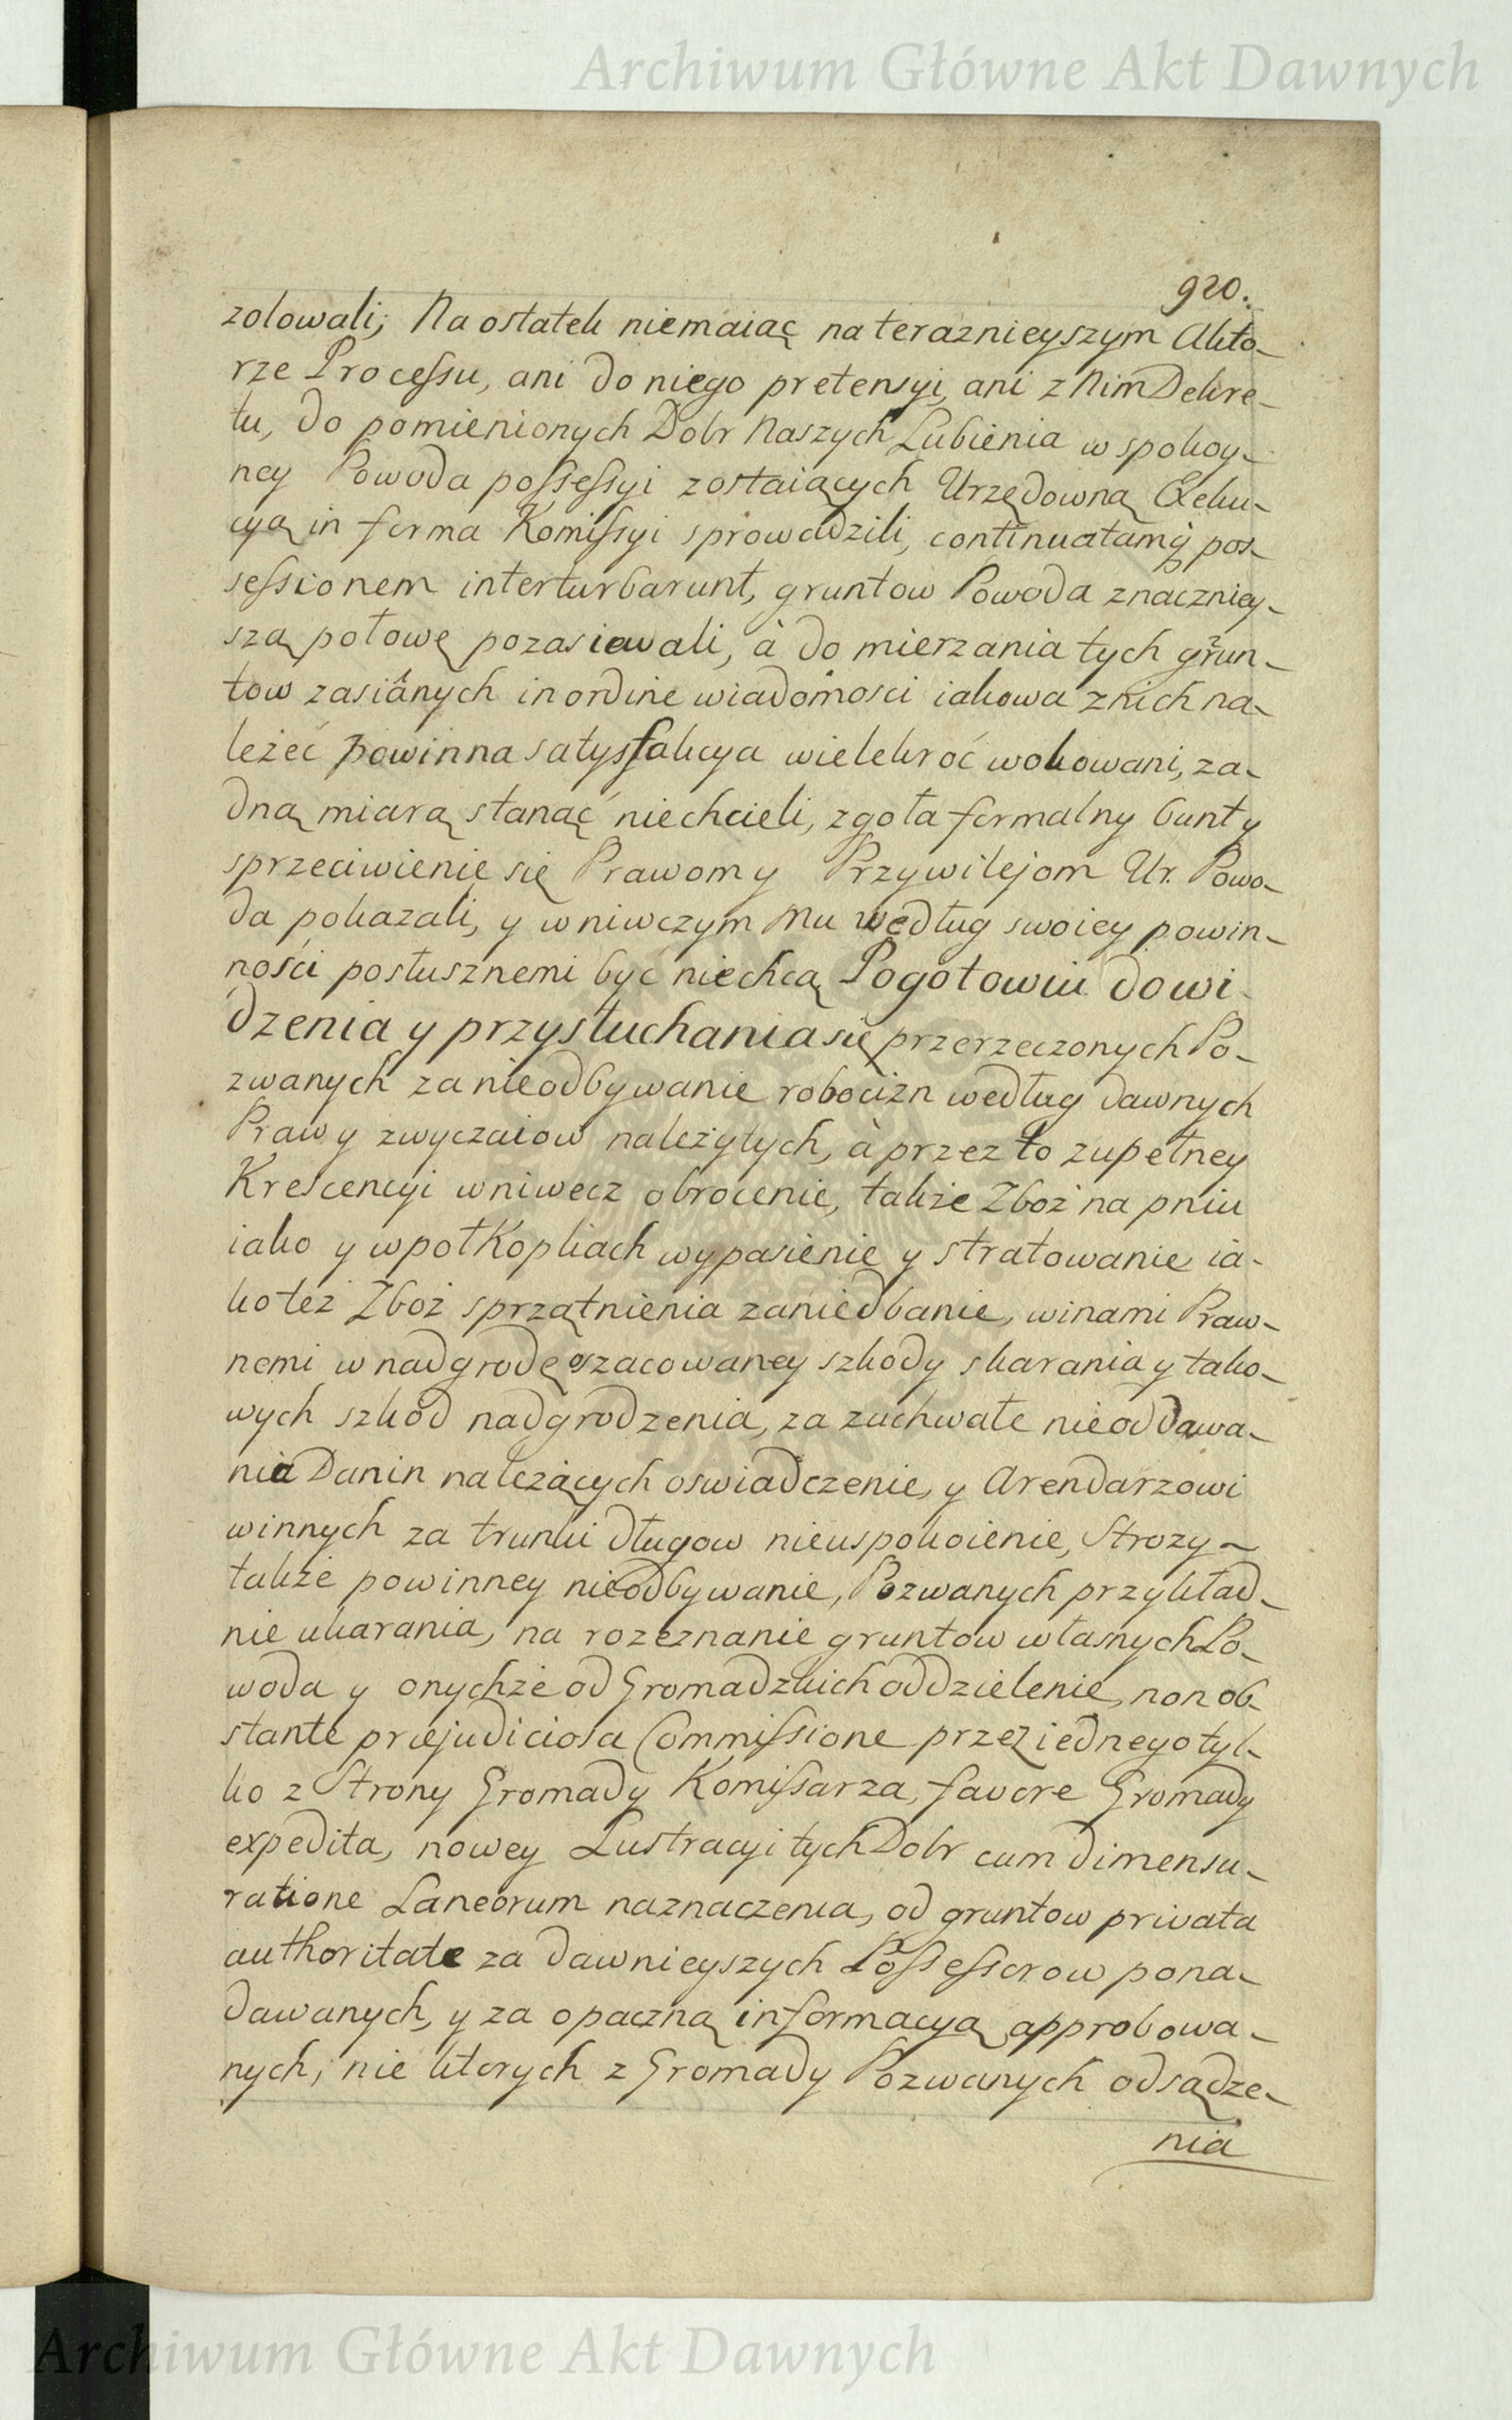 Archiwum Główne Akt Dawnych
920.
zolowali; Na ostatek niemaiąc na teraznieyszym Akto-
rze Processu, ani do niego pretensyi, ani z Nim Dekre-
tu, do pomienionych Dobr Naszych Lubienia w spokoy-
ney Powoda possessyi zostaiących Urzędowną Exeku-
cyą in forma Komissyi sprowadzili, continuatamq́ pos-
sessionem interturbarunt, gruntow Powoda znaczniey-
szą połowę pozasiewali, à do mierzania tych grun-
tow zasiánych in ordine wiadomosci iakowa z nich na-
leżeć powinna satysfakcya wielekroć wokowani, za-
dną miarą stanąć niechcieli, zgoła formalny bunt y
sprzeciwienie się Prawom y Przywilejom Ur. Powo-
da pokazali, y w niwczym Mu według swoiey powin-
ności posłusznemi być niechcą Pogotowiu do wi-
dzenia y przysłuchania się przerzeczonych Po-
zwanych za nieodbywanie robocizn według dawnych
Praw y zwyczaiow należytych, à przez to zupełney
Krescencyi w niwecz obrocenie, także Zboż na pniu
iako y w połKopkach wypasienie y stratowanie ia-
koteż Zboż sprzątnienia zaniedbanie, winami Praw-
nemi w nadgrodę oszacowaney szkody skarania y tako-
wych szkod nadgrodzenia, za zuchwałe nieoddawa-
nia Danin należących oswiadczenie, y Arendarzowi
winnych za trunki długow nieuspokoienie, Strozy-
także powinney nieodbywanie, Pozwanych przykład-
nie ukarania, na rozeznanie gruntow własnych Po-
woda y onychże od Gromadzkich oddzielenie, non ob-
stante præjudiciosa Commissione przez iednego tyl-
ko z Strony Gromady Komissarza, favore Gromady
expedita, nowey Lustracyi tych Dobr cum dimensu-
ratione Laneorum naznaczenia, od gruntow privata
authoritate za dawnieyszych Possessorow pona-
dawanych, y za opaczną informacyą approbowa-
nych, nie ktorych z Gromady Pozwanych odsądze-
nia
Archiwum Główne Akt Dawnych